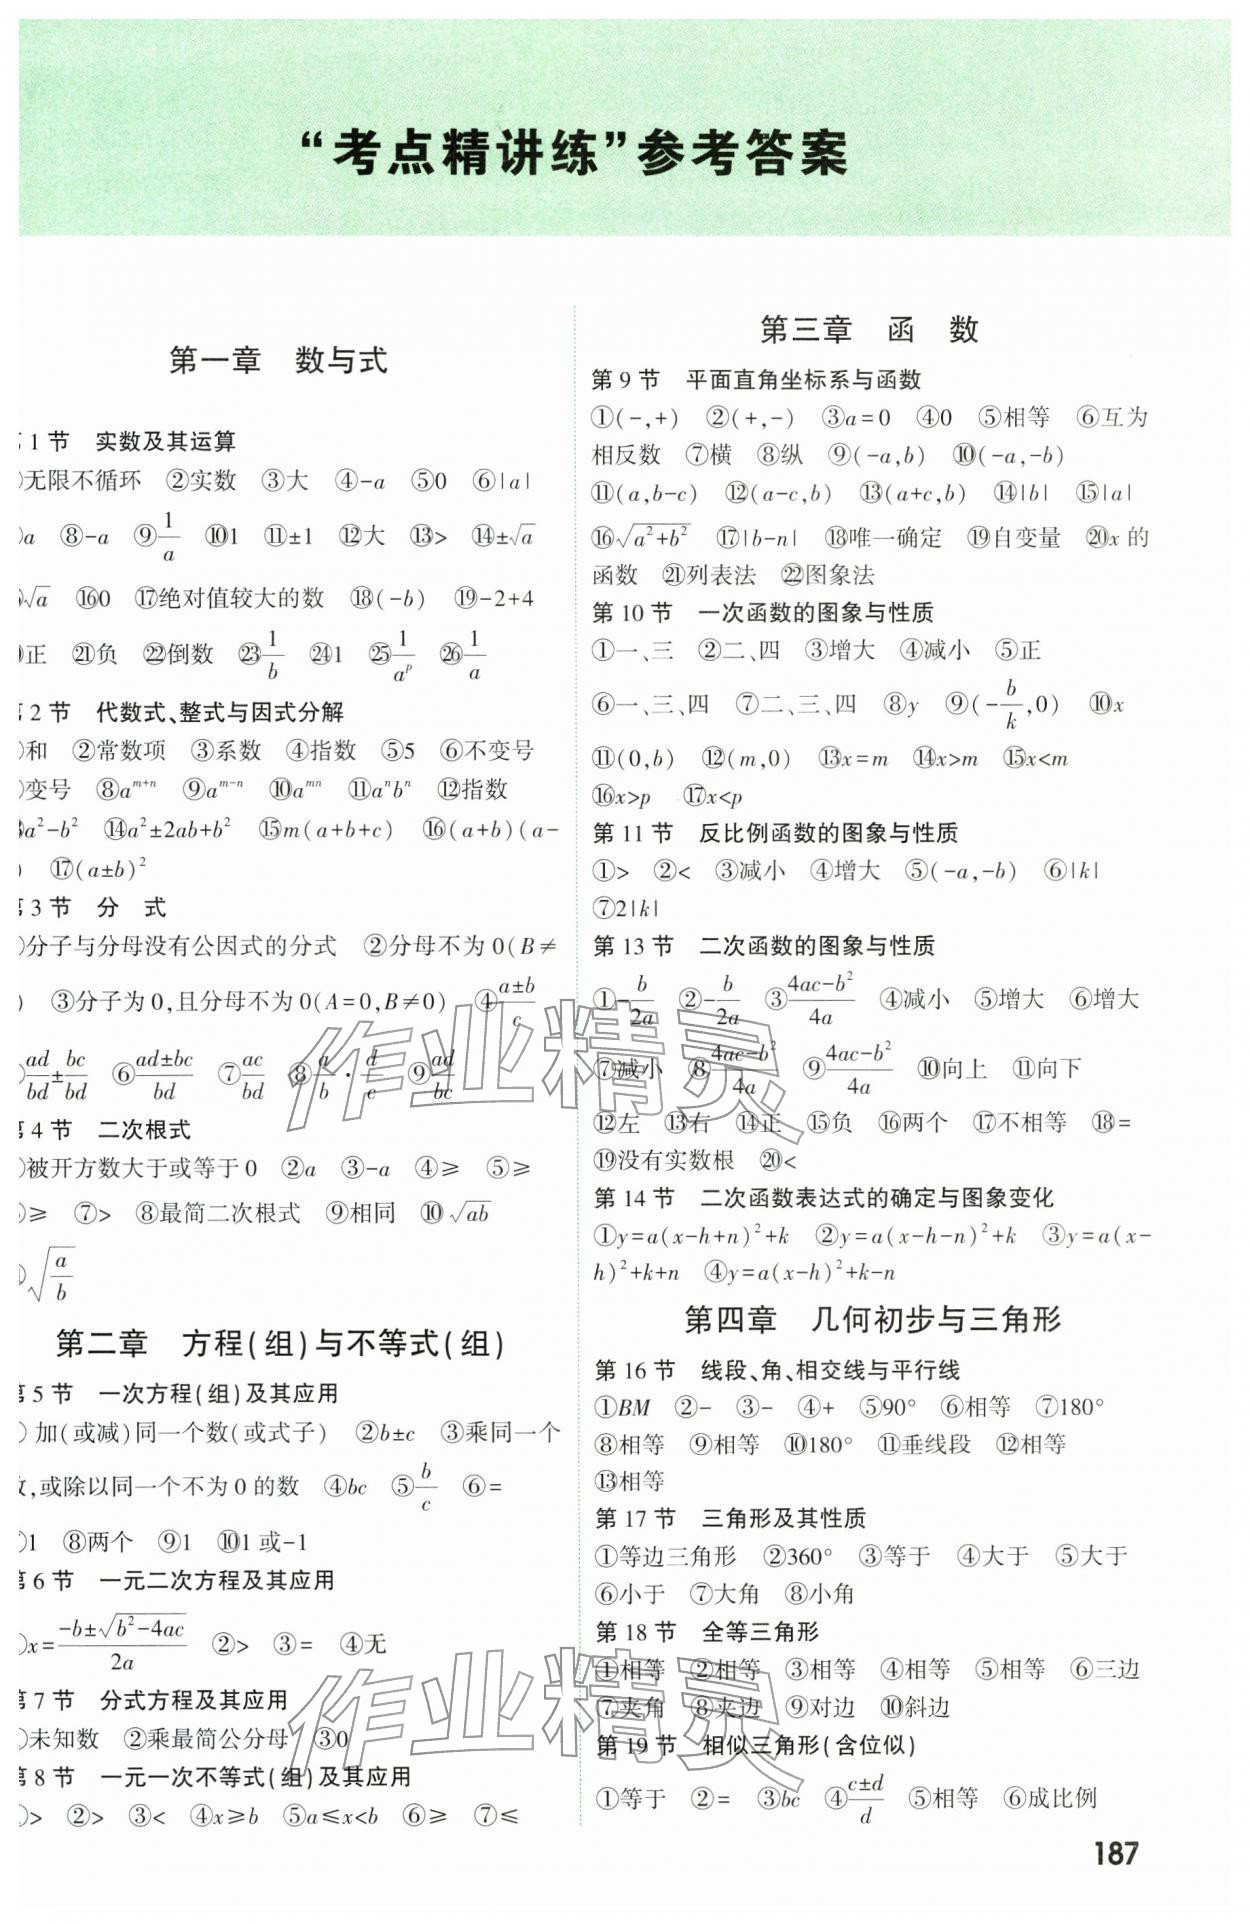 “考点精讲练”参考答案
第一章 数与式
1 节 实数及其运算
无限不循环 ②实数 ③大 ④-a ⑤0 ⑥|a|
a ⑧-a ⑨1/a ⑩1 ⑪±1 ⑫大 ⑬> ⑭±√a
√a ⑯0 ⑰绝对值较大的数 ⑱(-b) ⑲-2+4
正 ㉑负 ㉒倒数 ㉓1/b ㉔1 ㉕1/a^p ㉖1/a
2 节 代数式、整式与因式分解
和 ②常数项 ③系数 ④指数 ⑤5 ⑥不变号
变号 ⑧a^(m+n) ⑨a^(m-n) ⑩a^(mn) ⑪a^n b^n ⑫指数
a²-b² ⑭a²±2ab+b² ⑮m(a+b+c) ⑯(a+b)(a-
) ⑰(a±b)²
3 节 分 式
分子与分母没有公因式的分式 ②分母不为 0(B≠
) ③分子为 0,且分母不为 0(A=0,B≠0) ④(a±b)/c
ad/bd±bc/bd ⑥(ad±bc)/bd ⑦ac/bd ⑧a/b·d/c ⑨ad/bc
4 节 二次根式
被开方数大于或等于 0 ②a ③-a ④≥ ⑤≥
≥ ⑦> ⑧最简二次根式 ⑨相同 ⑩√ab
√(a/b)
第二章 方程(组)与不等式(组)
5 节 一次方程(组)及其应用
加(或减)同一个数(或式子) ②b±c ③乘同一个
,或除以同一个不为 0 的数 ④bc ⑤b/c ⑥=
1 ⑧两个 ⑨1 ⑩1 或-1
6 节 一元二次方程及其应用
x=(-b±√(b²-4ac))/2a ②> ③= ④无
7 节 分式方程及其应用
未知数 ②乘最简公分母 ③0
8 节 一元一次不等式(组)及其应用
> ②> ③< ④x≥b ⑤a≤x<b ⑥≥ ⑦≤
第三章 函 数
第 9 节 平面直角坐标系与函数
①(-,+) ②(+,-) ③a=0 ④0 ⑤相等 ⑥互为
相反数 ⑦横 ⑧纵 ⑨(-a,b) ⑩(-a,-b)
⑪(a,b-c) ⑫(a-c,b) ⑬(a+c,b) ⑭|b| ⑮|a|
⑯√(a²+b²) ⑰|b-n| ⑱唯一确定 ⑲自变量 ⑳x 的
函数 ㉑列表法 ㉒图象法
第 10 节 一次函数的图象与性质
①一、三 ②二、四 ③增大 ④减小 ⑤正
⑥一、三、四 ⑦二、三、四 ⑧y ⑨(-b/k,0) ⑩x
⑪(0,b) ⑫(m,0) ⑬x=m ⑭x>m ⑮x<m
⑯x>p ⑰x<p
第 11 节 反比例函数的图象与性质
①> ②< ③减小 ④增大 ⑤(-a,-b) ⑥|k|
⑦2|k|
第 13 节 二次函数的图象与性质
①-b/2a ②-b/2a ③(4ac-b²)/4a ④减小 ⑤增大 ⑥增大
⑦减小 ⑧(4ac-b²)/4a ⑨(4ac-b²)/4a ⑩向上 ⑪向下
⑫左 ⑬右 ⑭正 ⑮负 ⑯两个 ⑰不相等 ⑱=
⑲没有实数根 ⑳<
第 14 节 二次函数表达式的确定与图象变化
①y=a(x-h+n)²+k ②y=a(x-h-n)²+k ③y=a(x-
h)²+k+n ④y=a(x-h)²+k-n
第四章 几何初步与三角形
第 16 节 线段、角、相交线与平行线
①BM ②- ③- ④+ ⑤90° ⑥相等 ⑦180°
⑧相等 ⑨相等 ⑩180° ⑪垂线段 ⑫相等
⑬相等
第 17 节 三角形及其性质
①等边三角形 ②360° ③等于 ④大于 ⑤大于
⑥小于 ⑦大角 ⑧小角
第 18 节 全等三角形
①相等 ②相等 ③相等 ④相等 ⑤相等 ⑥三边
⑦夹角 ⑧夹边 ⑨对边 ⑩斜边
第 19 节 相似三角形(含位似)
①等于 ②= ③bc ④(c±d)/d ⑤相等 ⑥成比例
187
作业精灵
作业精灵